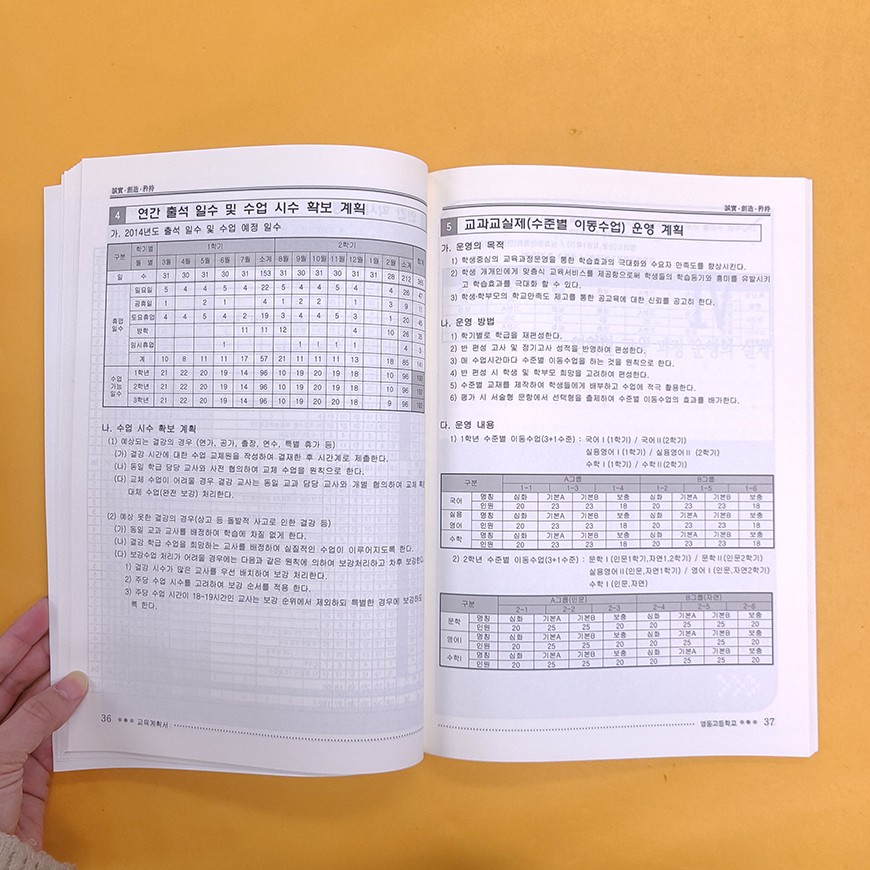 誠實·創造·矜持
4 연간 출석 일수 및 수업 시수 확보 계획
가. 2014년도 출석 일수 및 수업 예정 일수
구분 학기별 1학기 2학기
월 별 3월 4월 5월 6월 7월 소계 8월 9월 10월 11월 12월 1월 2월 소계
일 수 31 30 31 30 31 153 31 30 31 30 31 31 28 212 365
휴업일수 일요일 5 4 4 5 4 22 5 4 4 5 4
공휴일 1 2 1 4 1 2 1 1
토요휴업 5 4 5 4 2 19 4 4 4 5 3
방학 11 11 12 4
임시휴업 1 1 1 1 1 1
계 10 8 11 11 17 57 21 11 11 11 13
수업가능일수 1학년 21 22 20 19 14 96 10 19 20 19 18
2학년 21 22 20 19 14 96 10 19 20 19 18
3학년 21 22 20 19 14 96 10 19 20 19 18
나. 수업 시수 확보 계획
(1) 예상되는 결강의 경우 (연가, 공가, 출장, 연수, 특별 휴가 등)
(가) 결강 시간에 대한 수업 교체원을 작성하여 결재한 후 시간계로 제출한다.
(나) 동일 학급 담당 교사와 사전 협의하여 교체 수업을 원칙으로 한다.
(다) 교체 수업이 어려울 경우 결강 교사는 동일 교과 담당 교사와 개별 협의하여 교체
대체 수업(완전 보강) 처리한다.
(2) 예상 못한 결강의 경우(상고 등 돌발적 사고로 인한 결강 등)
(가) 동일 교과 교사를 배정하여 학습에 차질 없게 한다.
(나) 결강 학급 수업을 희망하는 교사를 배정하여 실질적인 수업이 이루어지도록 한다.
(다) 보강수업 처리가 어려울 경우에는 다음과 같은 원칙에 의하여 보강처리하고 차후 보강한다
1) 결강 시수가 많은 교사를 우선 배치하여 보강 처리한다.
2) 주당 수업 시수를 고려하여 보강 순서를 적용 한다.
3) 주당 수업 시간이 18-19시간인 교사는 보강 순위에서 제외하되 특별한 경우에 보강하도
록 한다.
36 교육계획서
誠實·創造·矜持
5 교과교실제(수준별 이동수업) 운영 계획
가. 운영의 목적
1) 학생중심의 교육과정운영을 통한 학습효과의 극대화와 수요자 만족도를 향상시킨다.
2) 학생 개개인에게 맞춤식 교육서비스를 제공함으로써 학생들의 학습동기와 흥미를 유발시키
고 학습효과를 극대화 할 수 있다.
3) 학생·학부모의 학교만족도 제고를 통한 공교육에 대한 신뢰를 공고히 한다.
나. 운영 방법
1) 학기별로 학급을 재편성한다.
2) 반 편성 고사 및 정기고사 성적을 반영하여 편성한다.
3) 매 수업시간마다 수준별 이동수업을 하는 것을 원칙으로 한다.
4) 반 편성 시 학생 및 학부모 희망을 고려하여 편성한다.
5) 수준별 교재를 제작하여 학생들에게 배부하고 수업에 적극 활용한다.
6) 평가 시 서술형 문항에서 선택형을 출제하여 수준별 이동수업의 효과를 배가한다.
다. 운영 내용
1) 1학년 수준별 이동수업(3+1수준) : 국어Ⅰ(1학기) / 국어Ⅱ(2학기)
실용영어Ⅰ(1학기) / 실용영어Ⅱ (2학기)
수학Ⅰ(1학기) / 수학Ⅱ(2학기)
구분 A그룹 B그룹
1-1 1-3 1-4 1-2 1-5 1-6
국어 명칭 심화 기본A 기본B 보충 심화 기본A 기본B 보충
인원 20 23 23 18 20 23 23 18
실용영어 명칭 심화 기본A 기본B 보충 심화 기본A 기본B 보충
인원 20 23 23 18 20 23 23 18
수학 명칭 심화 기본A 기본B 보충 심화 기본A 기본B 보충
인원 20 23 23 18 20 23 23 18
2) 2학년 수준별 이동수업(3+1수준) : 문학Ⅰ(인문1학기,자연1,2학기) / 문학Ⅱ(인문2학기)
실용영어Ⅱ(인문,자연1학기) / 영어Ⅰ(인문,자연2학기)
수학Ⅰ(인문,자연)
구분 A그룹(인문) B그룹(자연)
2-1 2-2 2-3 2-4 2-5 2-6
문학 명칭 심화 기본A 기본B 보충 심화 기본A 기본B 보충
인원 20 25 25 20 20 25 25 20
영어Ⅰ 명칭 심화 기본A 기본B 보충 심화 기본A 기본B 보충
인원 20 25 25 20 20 25 25 20
수학Ⅰ 명칭 심화 기본A 기본B 보충 심화 기본A 기본B 보충
인원 20 25 25 20 20 25 25 20
영동고등학교 37